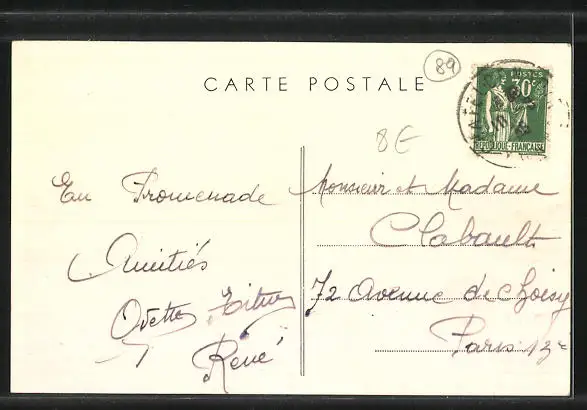 CARTE POSTALE
89
8€
POSTES
30c
REPUBLIQUE-FRANÇAISE
En Promenade
Amitiés
Odette
René
Monsieur et Madame
Clabault
72 Avenue de Choisy
Paris 13e